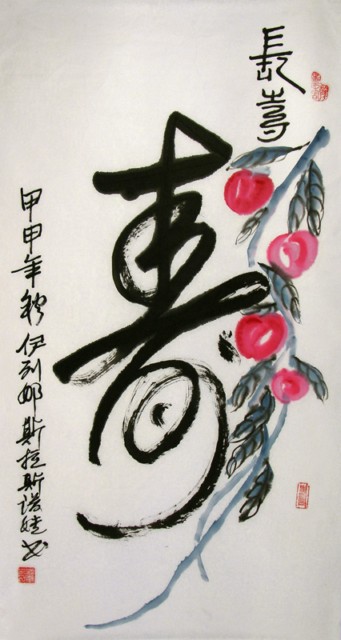 長壽
壽
甲申年秋伊列娜斯拉斯諾娃书